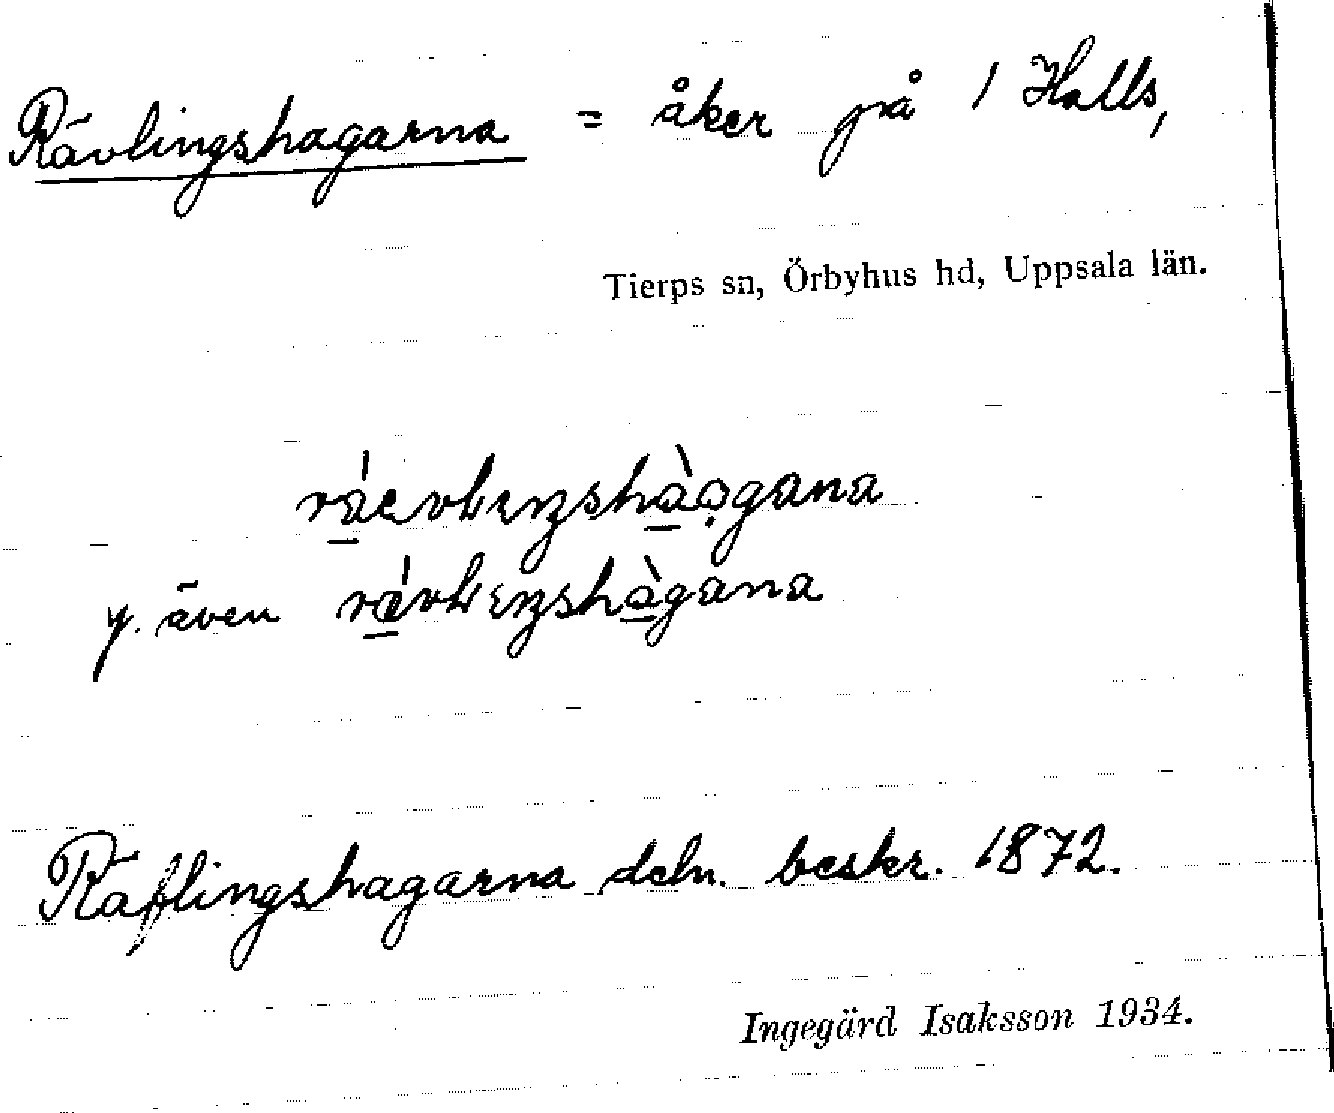 Rävlingshagarna = åker på 1 Halls,
Tierps sn, Örbyhus hd, Uppsala län.
y. även
Räflingshagarna deln. beskr. 1872.
Ingegärd Isaksson 1934.